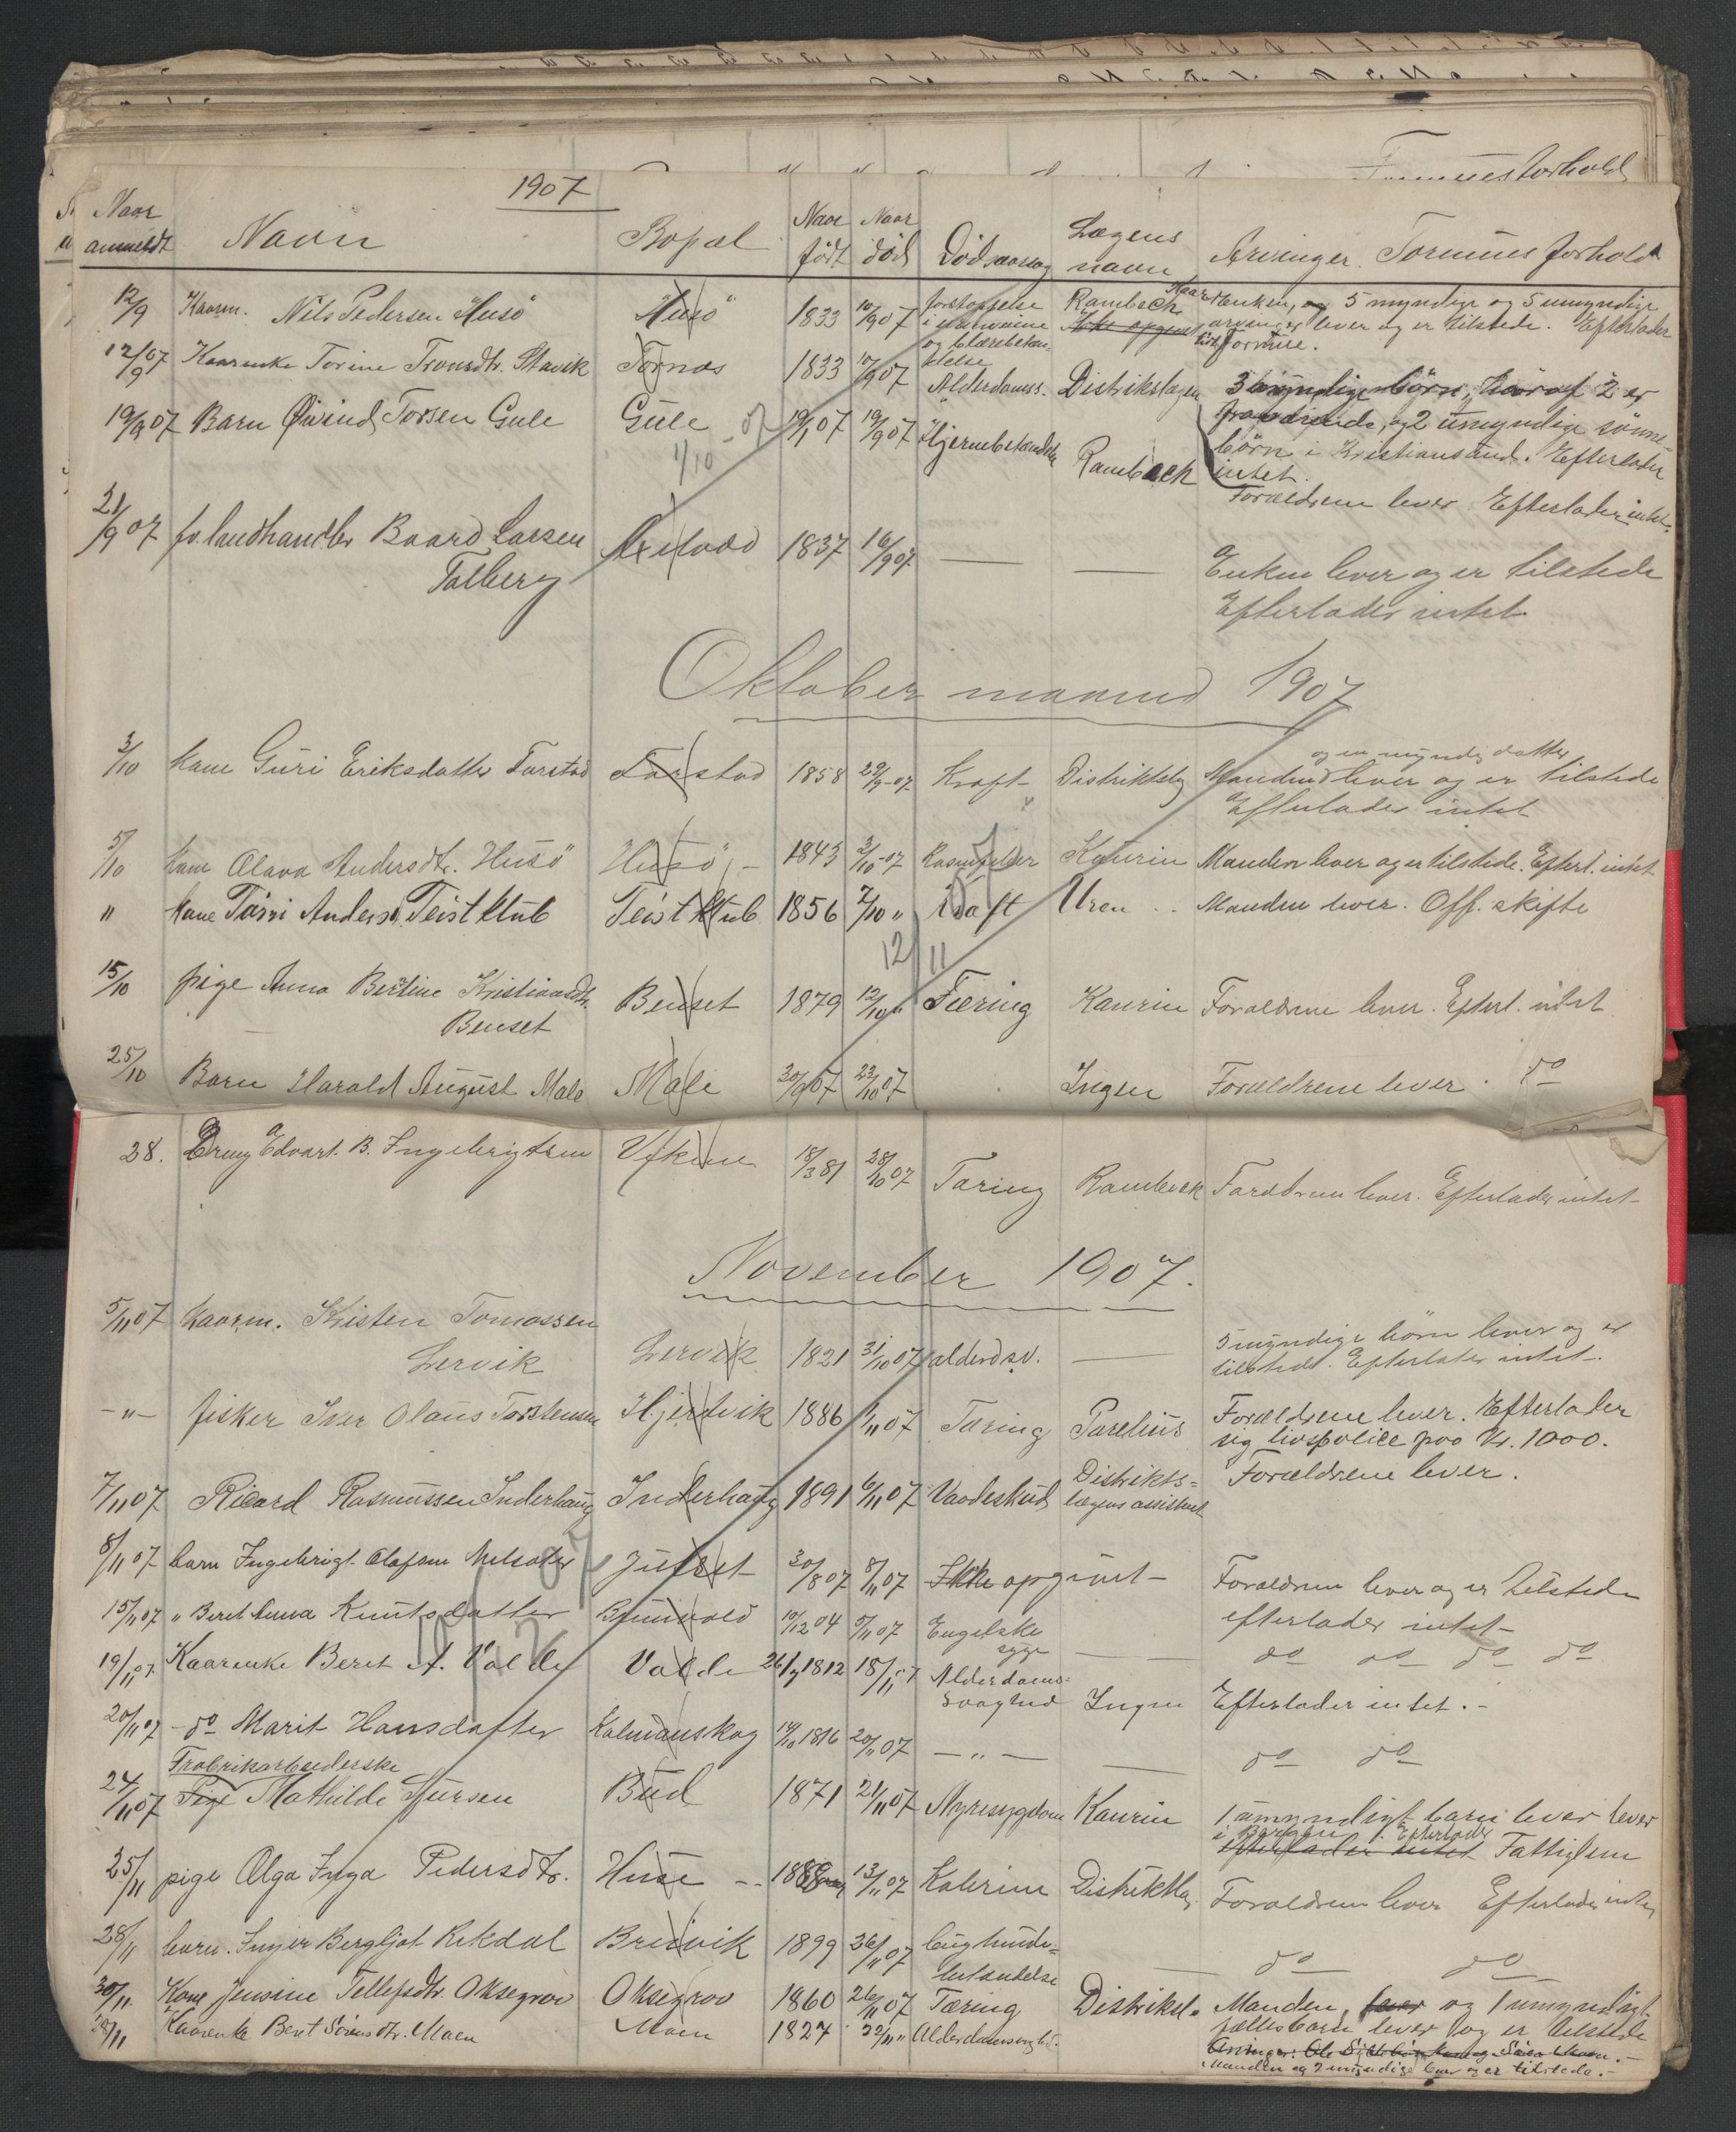 Formuesforhold
1907
Naar anmeldt Navn Bopæl Naar født Naar død Dødsaarsag Lægens navn Arvinger. Formues forhold
12/9 Kaarm. Nils Pedersen Husö Husö 1833 10/9 07 forstoppelse i urinveiene og blærebetændelse Rambeck Ikke opgivet Kaarenken, og 5 myndige og 5 umyndige
arvinger lever og er tilstede. Efterlader
formue.
12/9 07 Kaarenke Torine Tronsdtr. Stavik Tornes 1833 10/9 07 Alderdomss. Distriktslægen 3 myndige börn, hvoraf 2 er
fraværende, og 2 umyndige sönne-
börn i Kristiansund. Efterlader
intet.
19/9 07 Barn Öivind Torsen Gule Gule 19/1 07 19/9 07 Hjernebetændelse Rambeck Forældrene lever Efterlader intet.
1/10 -07
21/9 07 fv. landhandler Baard Larsen
Talberg 1837 16/9 07 — — Enken lever og er tilstede
Efterlader intet
Oktober maaned 1907
3/10 Kone Guri Eriksdatter Tarstad Tarstad 1858 29/9-07 Kræft Distriktslg Manden og en myndig datter lever og er tilstede
Efterlader intet
5/10 Kone Olava Andersdtr. Husö Husö - 1843 3/10-07 Kaurin Manden lever og er tilstede. Efterl. intet
" Kone Andersd. Teistklub Teistklub 1856 2/10 " Uren .. Manden lever. Off. skifte
12/11
15/10 pige Anna Bertine Kristiansdtr.
Benset Benset 1879 12/10 " Tæring Kaurin Forældrene lever. Efterl. intet
25/10 Barn Harald August Male Male 30/9 07 23/10 07 Ingen Forældrene lever. do
28. Dreng Edvart B. Ingebrigtsen 18/3 81 28/10 07 Tæring Rambeck Forældrene lever. Efterlader intet -
November 1907.
5/11 07 Kaarm. Kristen Tomassen
Lervik Lervik 1821 31/10 07 alderdsv. — 5 myndige börn lever og er
tilstede. Efterlater intet.
-"- fisker Iver Olaus Torstensen Hjertvik 1886 1/11 07 Tæring Parelius Forældrene lever. Efterlader
sig livspolice paa Kr. 1000.
7/11 07 Rikard Rasmussen Inderhaug Inderhaug 1891 6/11 07 Vaadeskud Distrikts-
lægens assistent Forældrene lever.
8/11 07 barn Ingebrigt Olafsen Julset 30/8 07 8/11 07 Ikke opgivet - Forældrene lever og er tilstede
efterlader intet -
15/11 07 " Beret Anna Knutsdatter 10/12 04 5/11 07 Engelske
syge — do do do do
19/11 07. Kaarenke Beret A. Valde Valde 26/7 1812 18/11 07 Alderdoms-
svaghed Ingen Efterlader intet. -
20/11 07 - do Marit Hansdatter Kalmanskog 19/10 1816 20/11 07 - " - — do do
Frabrikarbeiderske
24/11 07 Pige Mathilde Bud 1871 21/11 07 Nyresygdom Kaurin 1 umyndigt barn lever lever
i Bergen. Efterlader
efterlader intet Fattiglem
25/11 pige Olga Inga Pedersdtr. -- 1888 13/11 07 Distriktslg. Forældrene lever Efterlader intet
28/11 barn. Inger Bergljot Rekdal Breivik 1899 26/11 07 bughinde-
betændelse — do do
30/11. Kone Jensine Tellefsdtr. Oksegrov Oksegrov 1860 26/11 07 Tæring Distriktsl. Manden, lever og 1 umyndigt
fællesbarn lever og er tilstede
29/11 Kaarenke Berit Sörensdtr. Moen Moen 1827 22/11 " Alderdomssvaghed.
Manden og 7 myndige börn lever og er tilstede. -